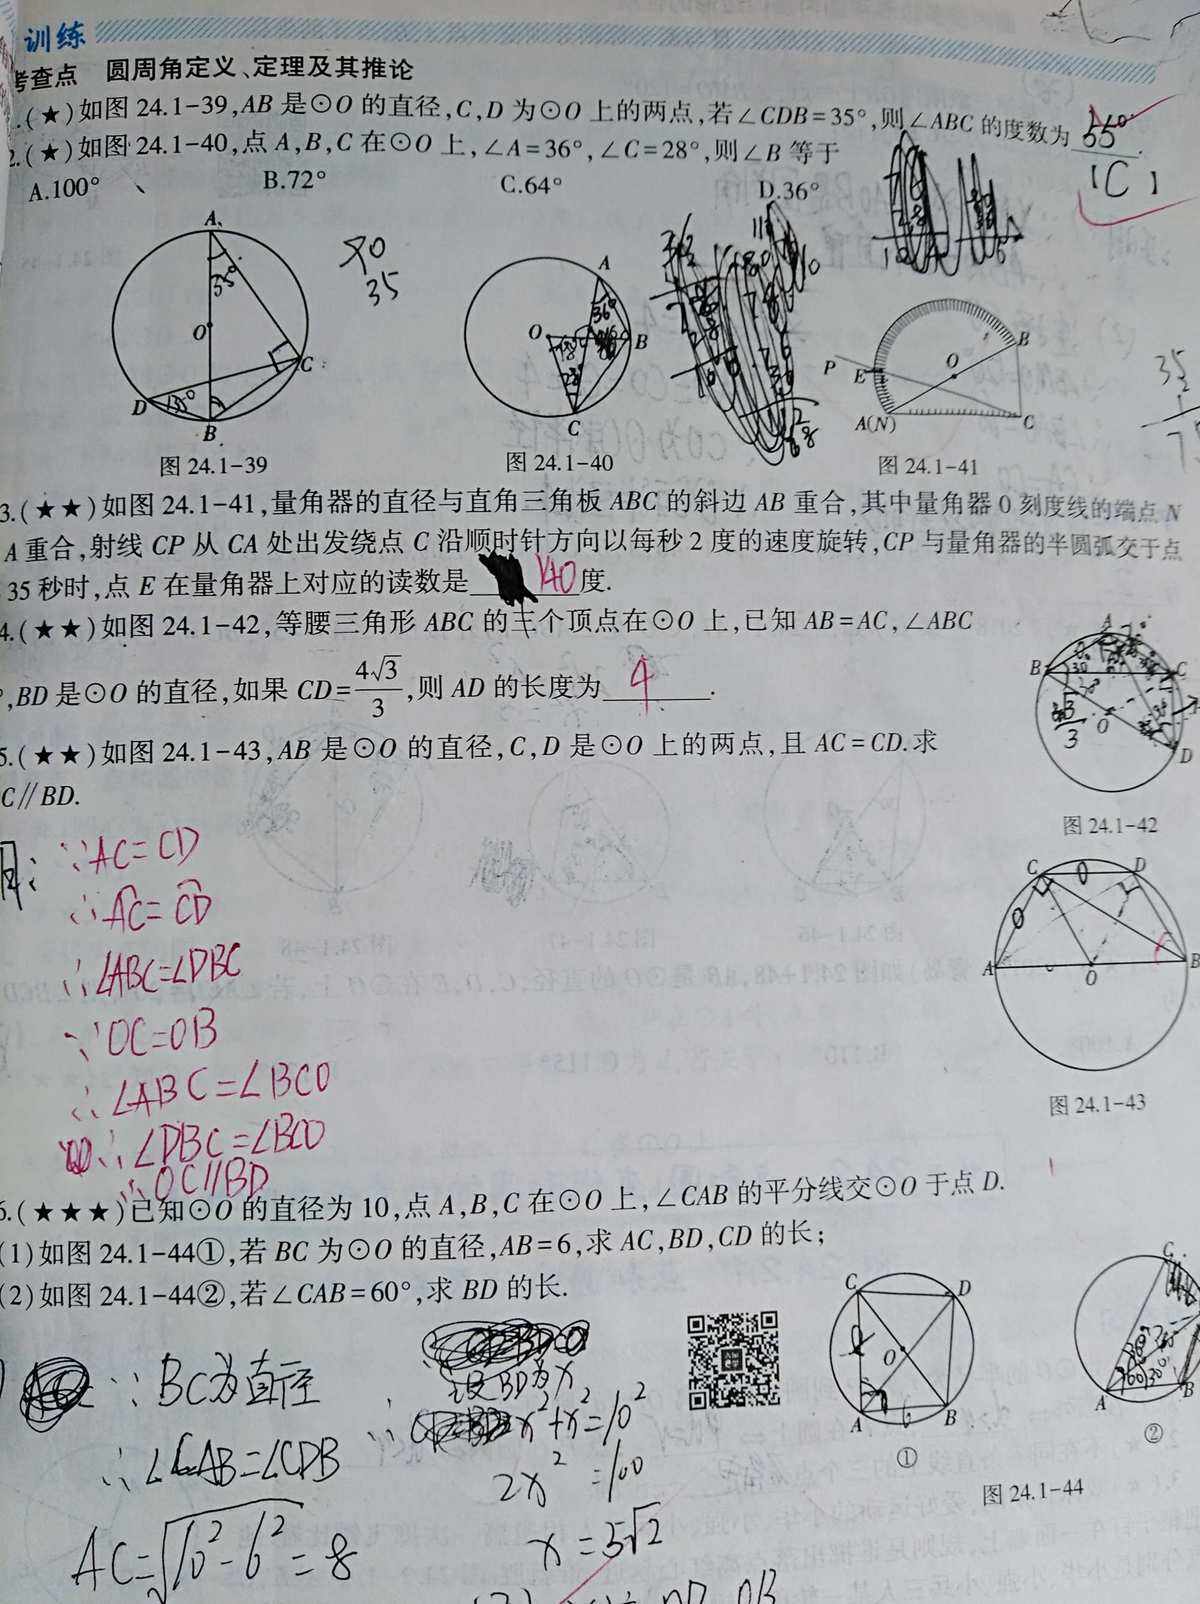 训练
考查点 圆周角定义、定理及其推论
.(★)如图24.1-39,AB是⊙O的直径,C,D为⊙O上的两点,若∠CDB=35°,则∠ABC的度数为 55°.
2.(★)如图24.1-40,点A,B,C在⊙O上,∠A=36°,∠C=28°,则∠B等于 【C】
A.100° B.72° C.64° D.36°
90
35
A
35°
O
C
D
35°
B
图24.1-39
A
36°
O
B
28°
C
图24.1-40
P
E
O
B
A(N)
C
图24.1-41
3.(★★)如图24.1-41,量角器的直径与直角三角板ABC的斜边AB重合,其中量角器0刻度线的端点N
A重合,射线CP从CA处出发绕点C沿顺时针方向以每秒2度的速度旋转,CP与量角器的半圆弧交于点
35秒时,点E在量角器上对应的读数是 140 度.
4.(★★)如图24.1-42,等腰三角形ABC的三个顶点在⊙O上,已知AB=AC,∠ABC
°,BD是⊙O的直径,如果CD=4√3/3,则AD的长度为 4 .
A
B
C
O
D
图24.1-42
5.(★★)如图24.1-43,AB是⊙O的直径,C,D是⊙O上的两点,且AC=CD.求
C∥BD.
∵AC=CD
∴AC=CD
∴∠ABC=∠DBC
∵OC=OB
∴∠ABC=∠BCO
∴∠DBC=∠BCO
∴OC∥BD
C
D
A
O
B
图24.1-43
6.(★★★)已知⊙O的直径为10,点A,B,C在⊙O上,∠CAB的平分线交⊙O于点D.
(1)如图24.1-44①,若BC为⊙O的直径,AB=6,求AC,BD,CD的长;
(2)如图24.1-44②,若∠CAB=60°,求BD的长.
∵BC为直径
∴∠CAB=∠CDB
AC=√10²-6²=8
设BD为x
∵x²+x²=10²
2x²=100
x=5√2
C
D
O
A
6
B
①
C
A
B
②
图24.1-44